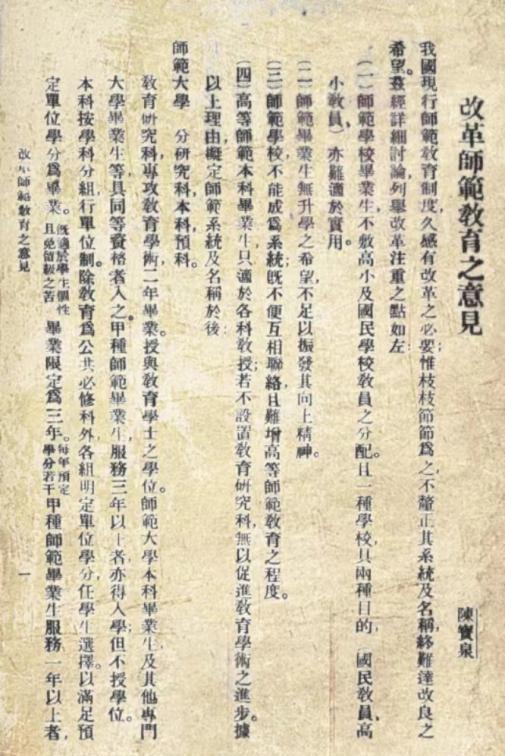 改革師範教育之意見
陳寶泉
我國現行師範教育制度久感有改革之必要；惟枝枝節節爲之不釐正其系統及名稱終難達改良之
希望。茲經詳細討論，列舉改革注重之點如左：
（一）師範學校畢業生不敷高小及國民學校教員之分配。且一種學校具兩種目的，（國民教員高
小教員）亦難適於實用。
（二）師範畢業生無升學之希望，不足以振發其向上精神。
（三）師範學校，不能成爲系統；既不便互相聯絡，且難增高等師範教育之程度。
（四）高等師範本科畢業生，只適於各科教授；若不設置教育研究科，無以促進教育學術之進步。據
以上理由，擬定師範系統及名稱於後：
師範大學　分研究科，本科，預科。
教育研究科，專攻教育學術，二年畢業。授與教育學士之學位。師範大學本科畢業生，及其他專門
大學畢業生，等具同等資格者入之。甲種師範畢業生，服務三年以上者，亦得入學；但不授學位。
本科按學科分組，行單位制。除教育爲公共必修科外，各組明定單位學分，任學生選擇，以滿足預
定單位學分爲畢業。既適於學生個性且免留級之苦　畢業限定爲三年。每年預定學分若干甲種師範畢業生，服務一年以上者，
改革師範教育之意見
一